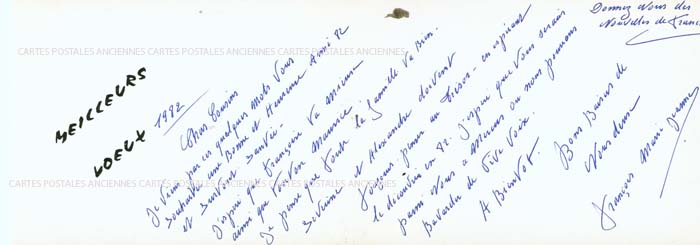 MEILLEURS
VOEUX
1982
Chers Cousins
Je viens par ces quelques mots vous
souhaiter une Bonne et Heureuse Année 82
et surtout Santé.
J'espère que Françoise va mieux
ainsi que Maurice
Je pense que toute la famille va Bien.
et Alexandre doivent
toujours penser au trésor - en espérant
le découvrir en 82. J'espère que vous serais
parmi nous a ou nous pourrons
Bavarder de Vive Voix.
A Bientôt.
Bons Baisers de
Vous deux
François Marie Jeanne
Donnez Nous des
Nouvelles de France
CARTES POSTALES ANCIENNES CARTES POSTALES ANCIENNES CARTES POSTALES ANCIENNES CARTES POSTALES ANCIENNES
CARTES POSTALES ANCIENNES CARTES POSTALES ANCIENNES CARTES POSTALES ANCIENNES CARTES POSTALES ANCIENNES